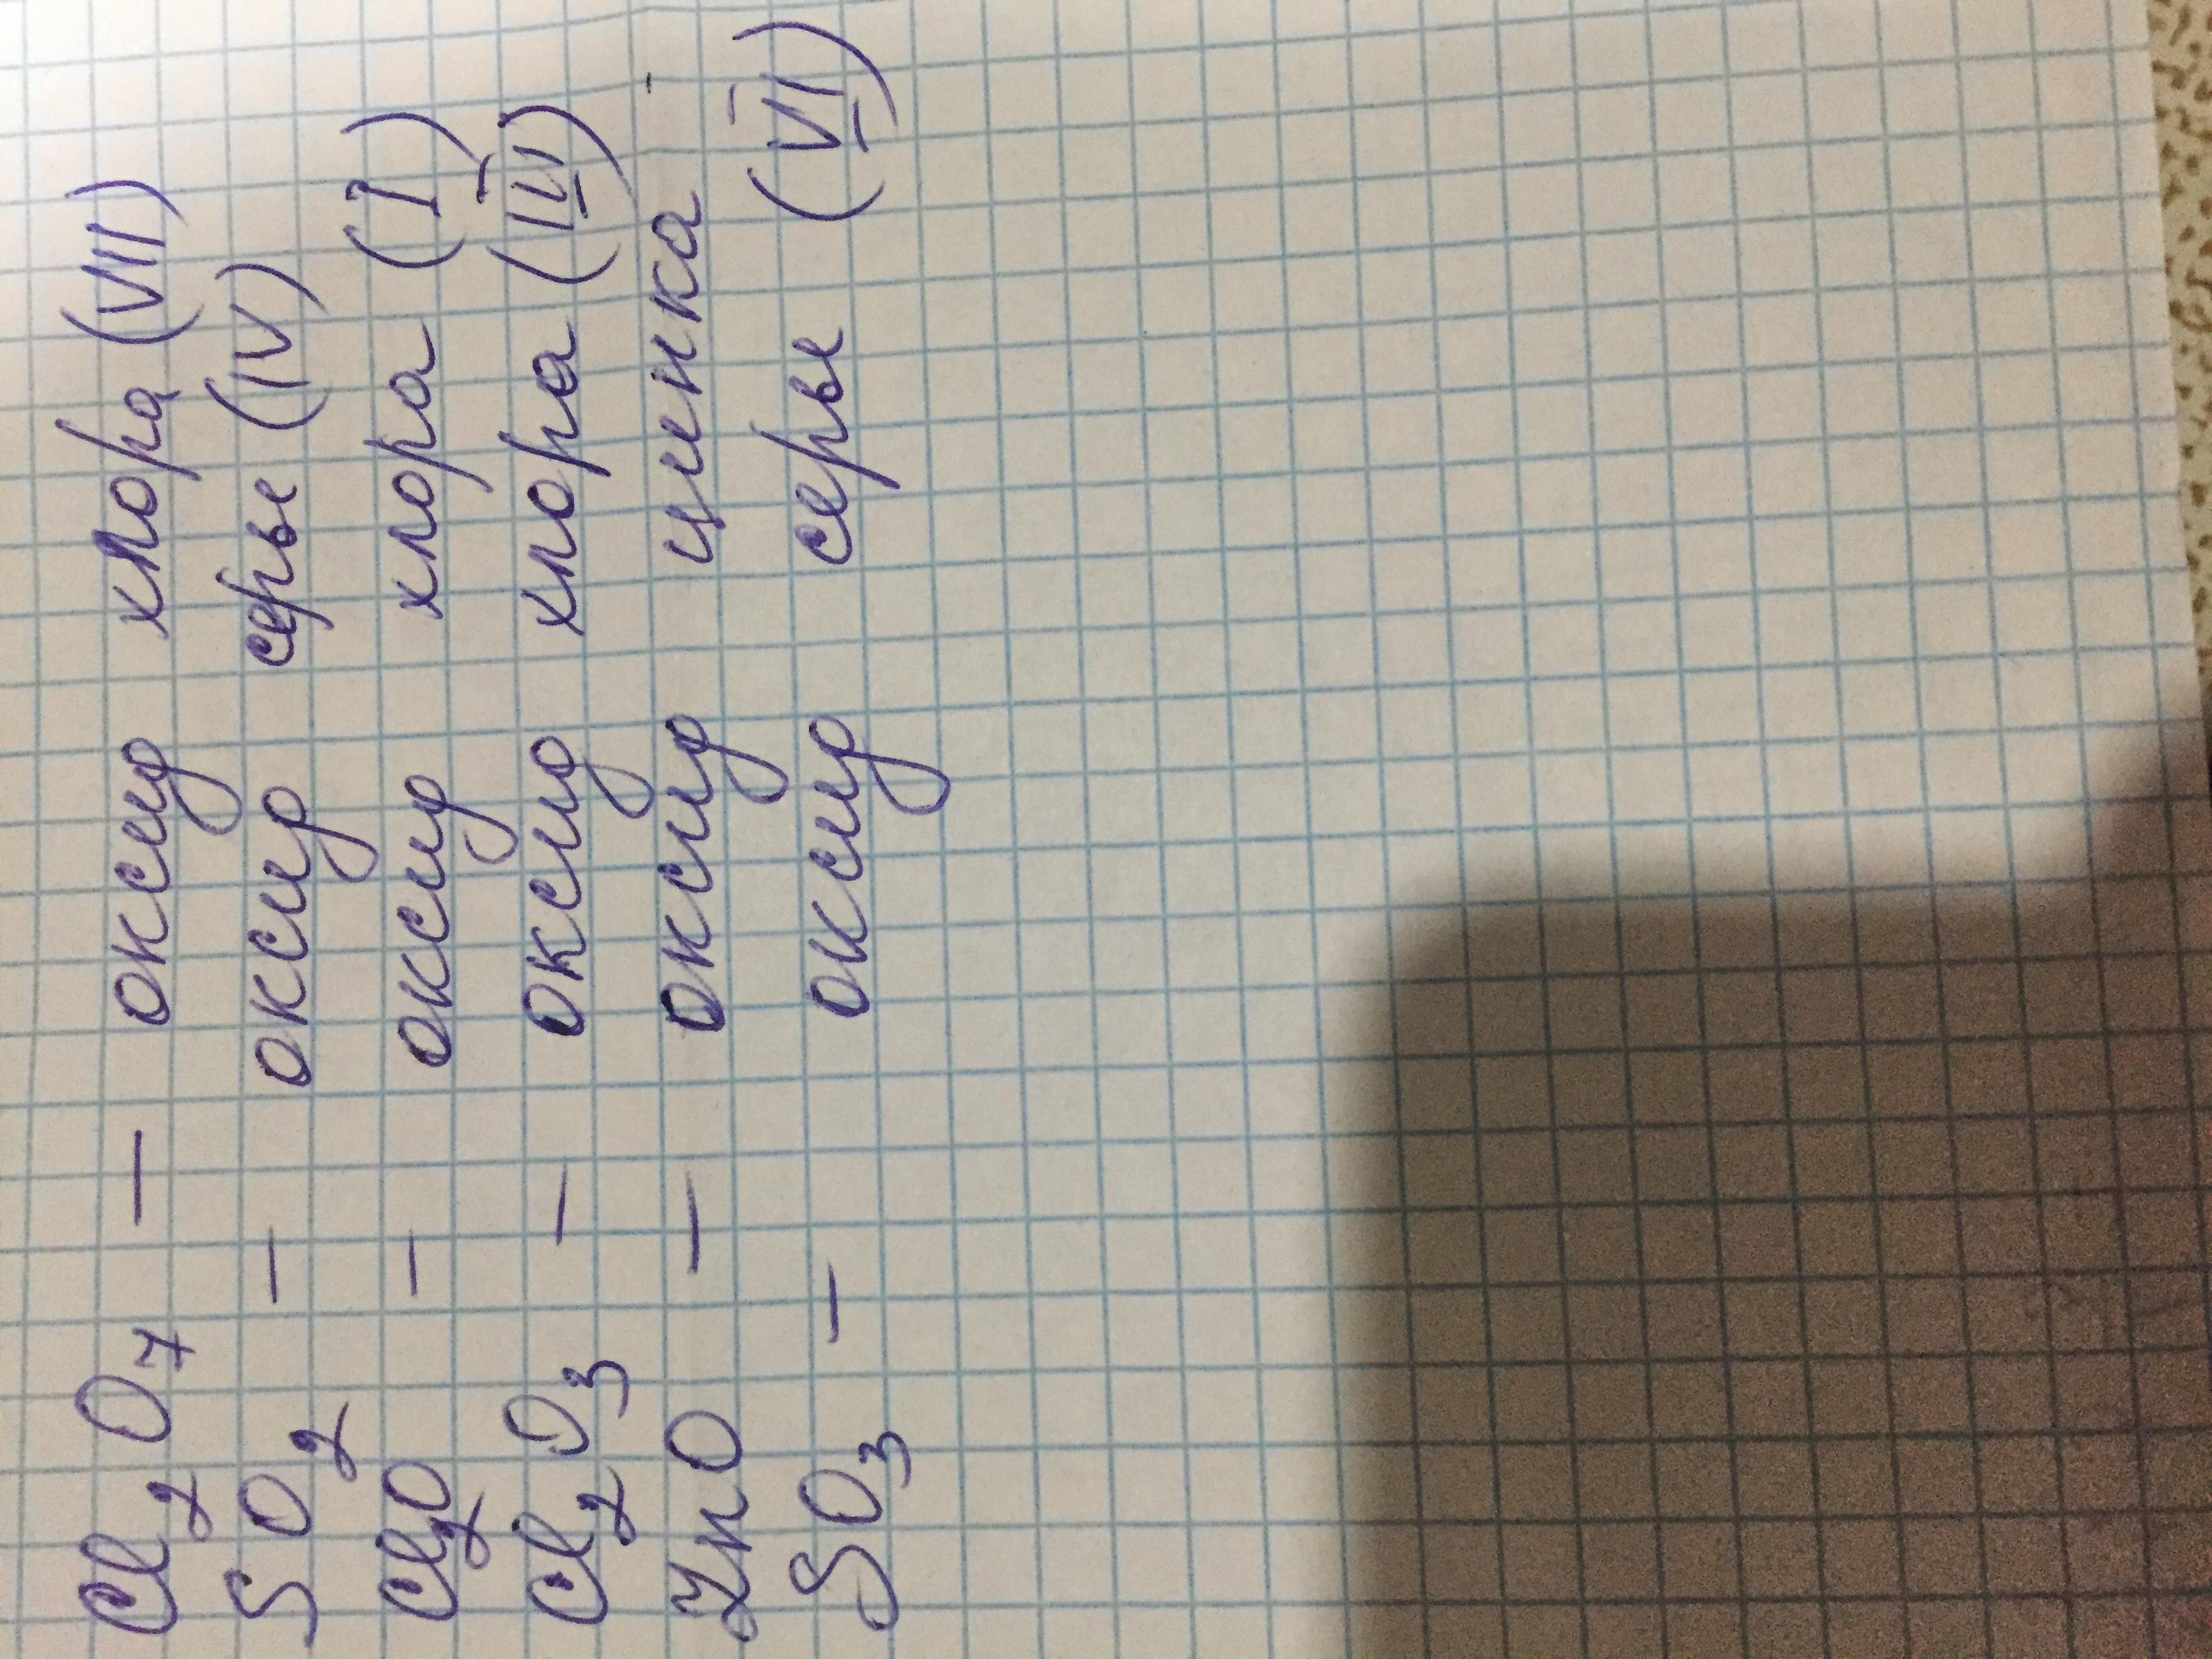 Cl₂O₇ — оксид хлора (VII)
SO₂ — оксид серы (IV)
Cl₂O — оксид хлора (I)
Cl₂O₃ — оксид хлора (III)
ZnO — оксид цинка
SO₃ — оксид серы (VI)